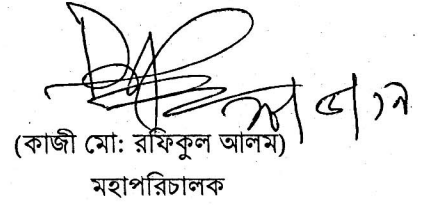 (কাজী মো: রফিকুল আলম)
মহাপরিচালক